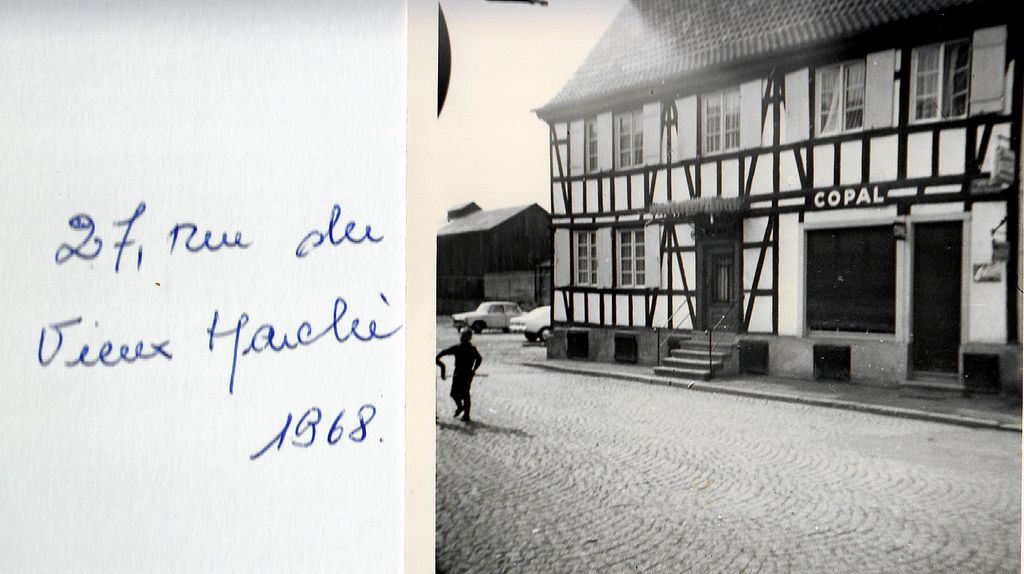 27, rue du
Vieux Marché
1968.
COPAL